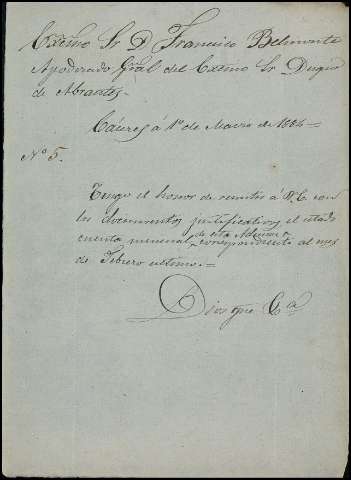 Exmo Sr D. Francisco Belmonte
Apoderado Gral del Exmo Sr Duque
de Abrantes.
Cáceres á 1º de Marzo de 1884=
Nº 5.
Tengo el honor de remitir á V. E. con
los documentos justificativos el estado
cuenta mensual de esta Admon correspondiente al mes
de Febrero ultimo.=
Dios gue &a